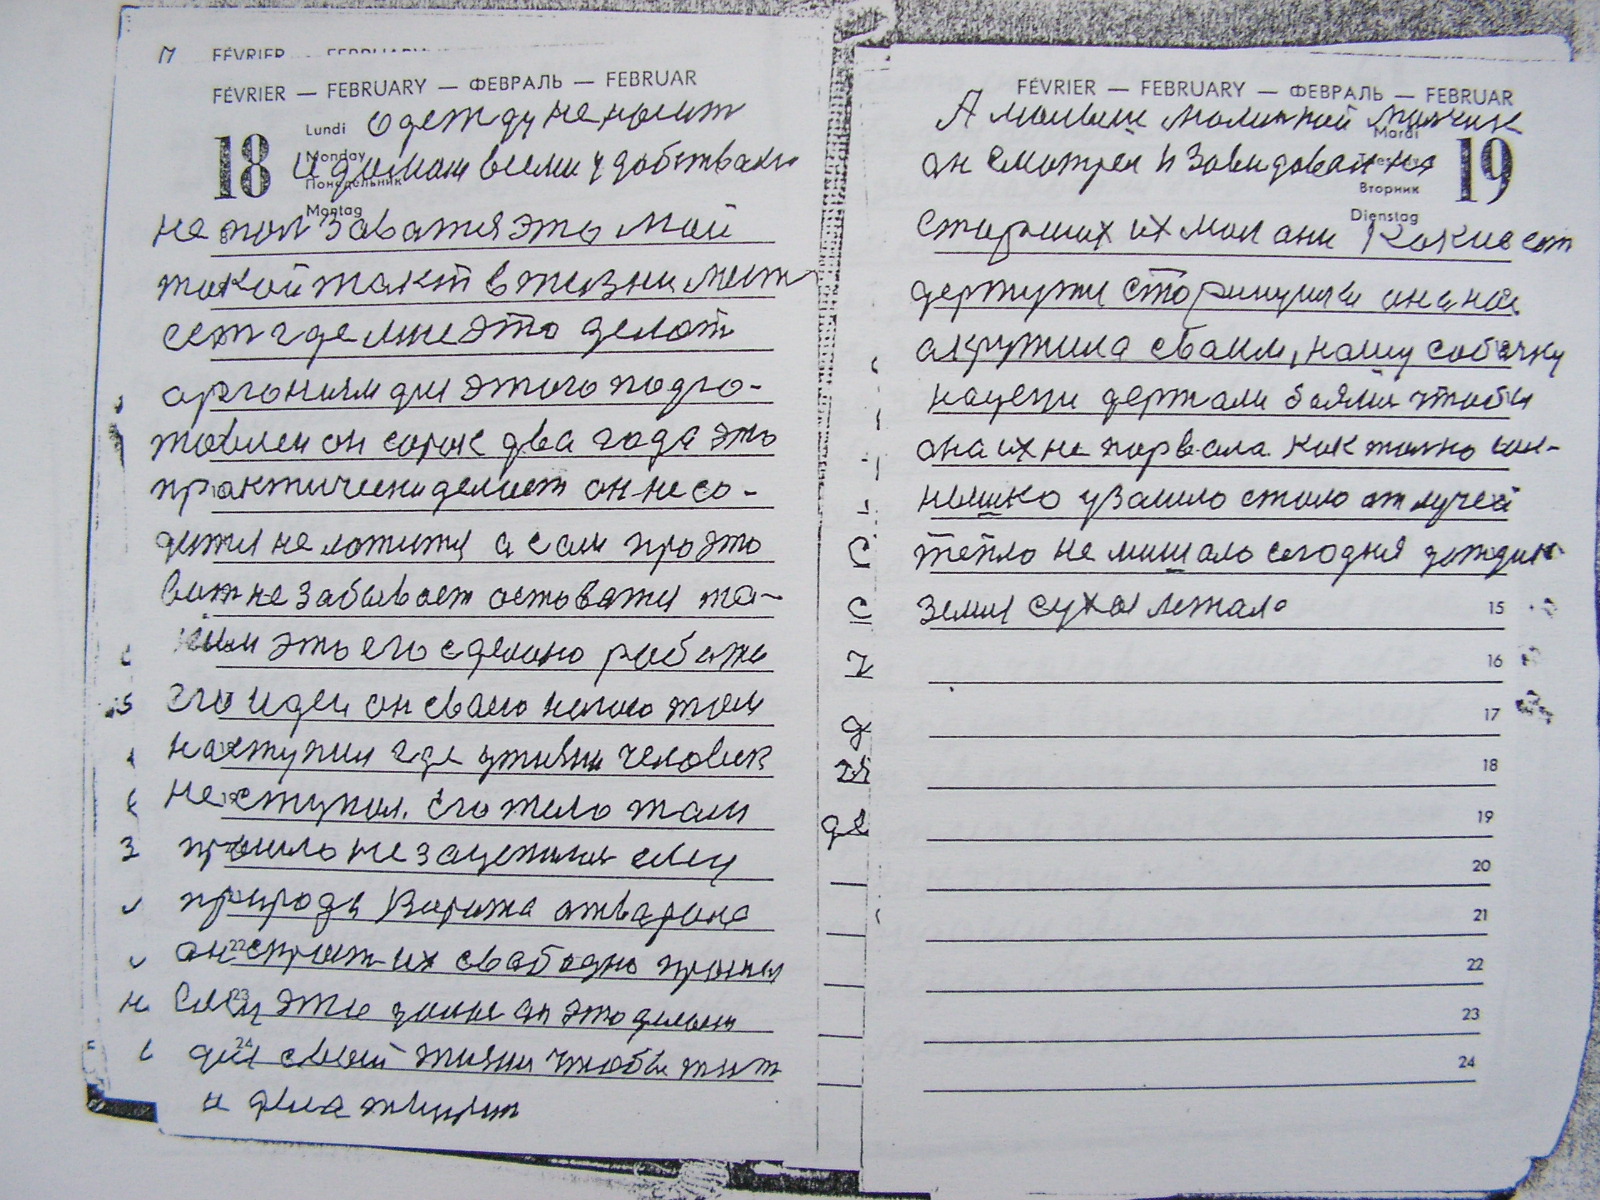 17 FÉVRIER — FEBRUARY
FÉVRIER — FEBRUARY — ФЕВРАЛЬ — FEBRUAR
18
Lundi
Monday
Понедельник
Montag
одежду не носит
и домам всеми удобствами
не пользаватся это мой
такой такт в жизни мест
сет где мне это делат
арганизм для этого подго-
товлен он сорок два года это
практически делает он не со-
дится не ложится а сам про это
вит не забывает оставатся та-
ким это его сделано работа
его идеи он сваею ногою там
наступил где у жизни человек
не ступал. Его тело там
прошло не зацепился ему
природа Варота атварила
он строит их свабодно прошол
ему это удалос он это делает
для своей жизни чтобы жит
и дела твирит
FÉVRIER — FEBRUARY — ФЕВРАЛЬ — FEBRUAR
19
Mardi
Tuesday
Вторник
Dienstag
А малыш маленкой малчик
он сматрел и завидовал на
старших их мол они какие ест
держужи старинушка она нас
акружила сваим, нашу собачку
на цепи держали баялис чтобы
она их не парвала. как толко сол-
нешко узашло стало от лучей
тепло не мишало сегодня дождик
земля сухая лежала
15
16
17
18
19
20
21
22
23
24